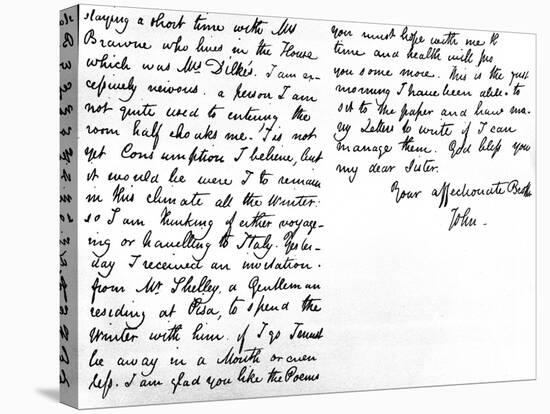 staying a short time with Mrs
Brawne who lives in the House
which was Mrs Dilke's. I am ex-
cessively nervous. a person I am
not quite used to entering the
room half choaks me. 'Tis not
yet Consumption I believe, but
it would be were I to remain
in this climate all the Winter:
so I am thinking of either voyag-
ing or travelling to Italy. Yester-
day I received an invitation
from Mr Shelley, a Gentleman
residing at Pisa, to spend the
Winter with him. if I go I must
be away in a Month or even
less. I am glad you like the Poems
you must hope with me
time and health will
you some more. This is the first
morning I have been able to
sit to the paper and have ma-
ny Letters to write if I can
manage them. God bless you
my dear Sister.
Your affectionate
John -